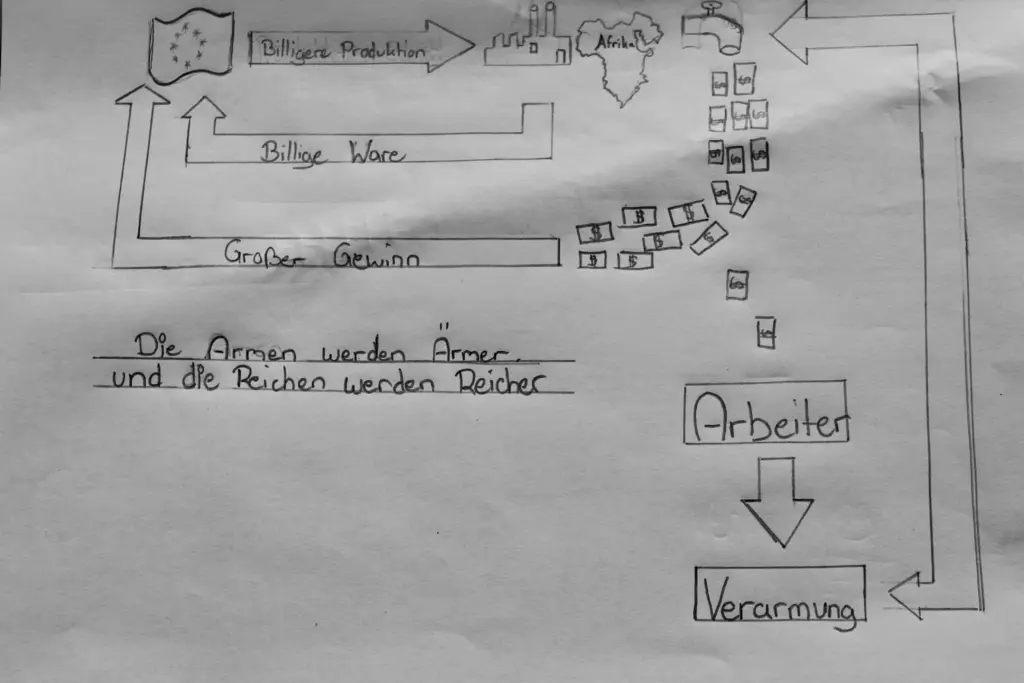 Billigere Produktion
Afrika
Billige Ware
Großer Gewinn
Die Armen werden Ärmer.
und die Reichen werden Reicher
Arbeiter
Verarmung